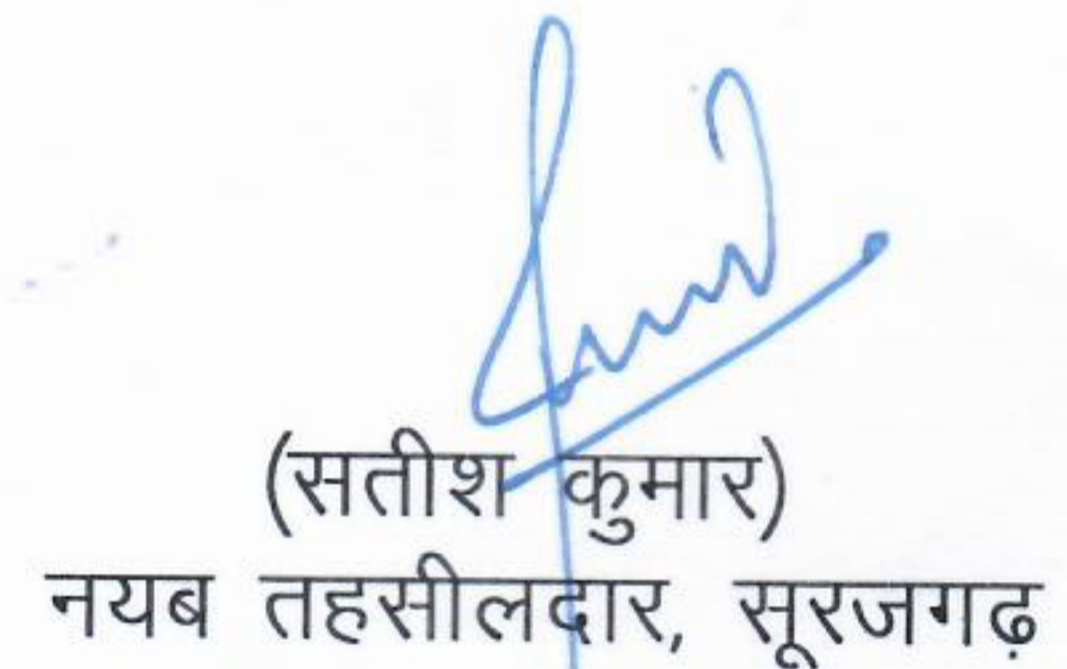 (सतीश कुमार)
नयब तहसीलदार, सूरजगढ़